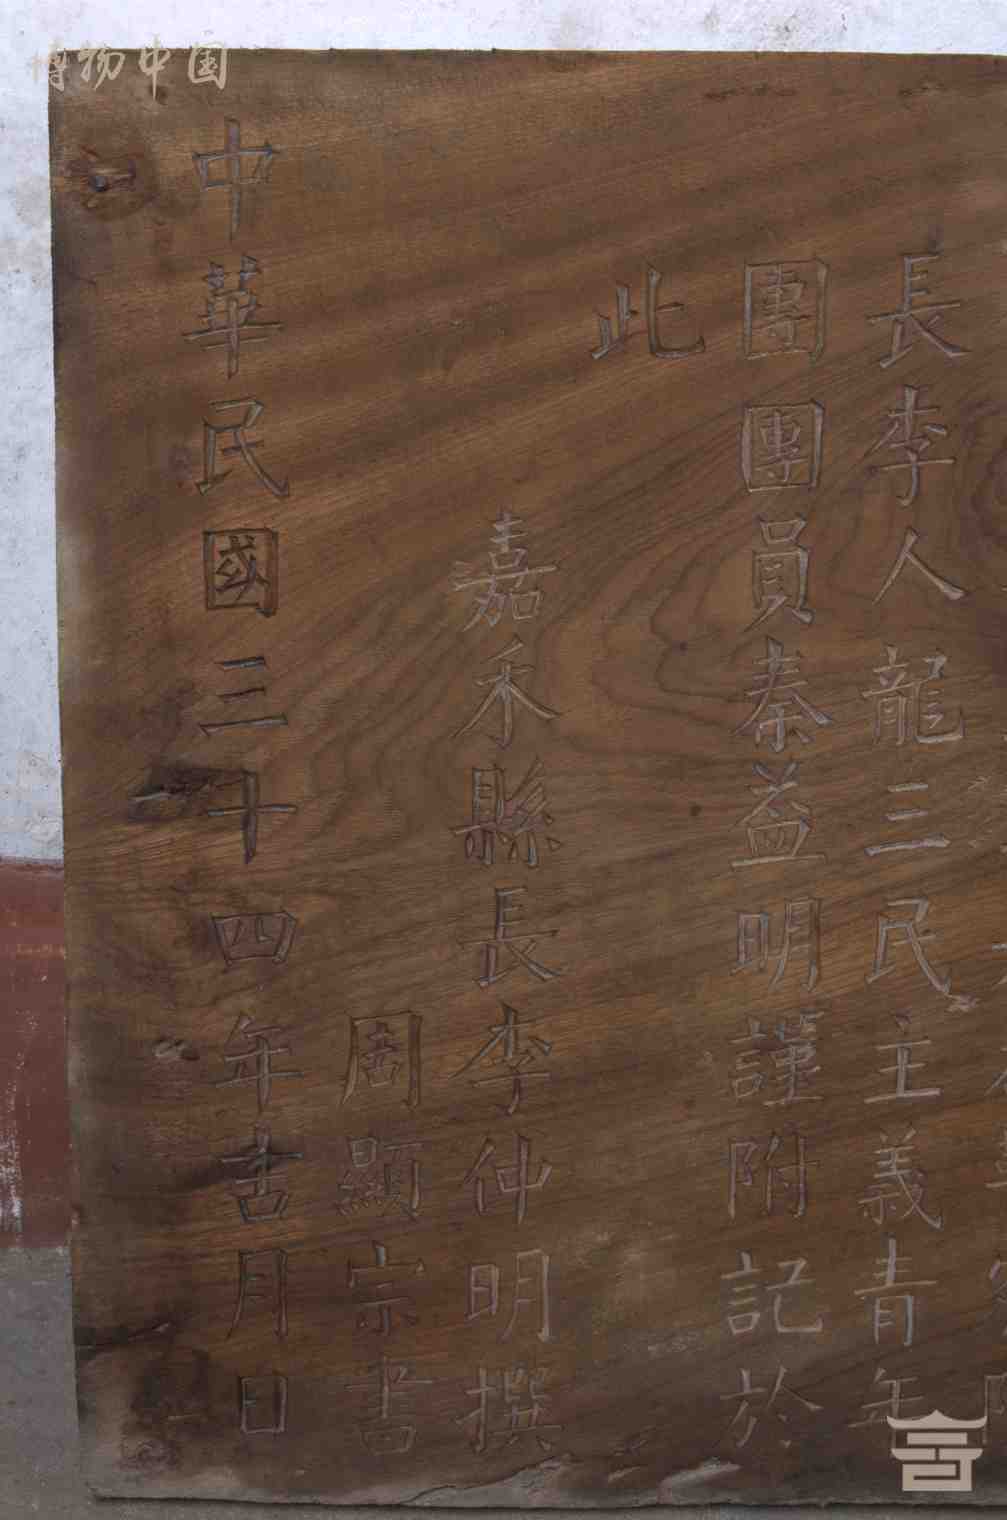 長李人龍三民主義青年
團團員秦益明謹附記於
此
嘉禾縣長李仲明撰
周顯宗書
中華民國三十四年吉月日
博物中国